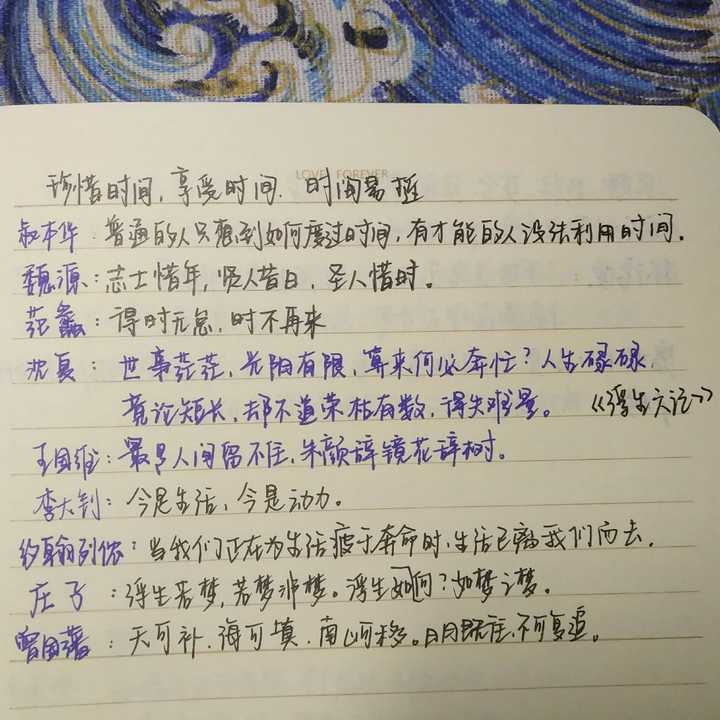 LOVE FOREVER
珍惜时间,享受时间.时间易逝
叔本华:普通的人只想到如何度过时间,有才能的人设法利用时间.
魏源:志士惜年,贤人惜日,圣人惜时。
范蠡:得时无怠,时不再来
沈复:世事茫茫,光阴有限,算来何必奔忙?人生碌碌,
竟论短长,却不道荣枯有数,得失难量。《浮生六记》
王国维:最是人间留不住,朱颜辞镜花辞树。
李大钊:今是生活,今是动力。
约翰列侬:当我们正在为生活疲于奔命时,生活已离我们而去.
庄子:浮生若梦,若梦非梦。浮生如何?如梦之梦。
曾国藩:天可补.海可填.南山可移。日月既往.不可复追。